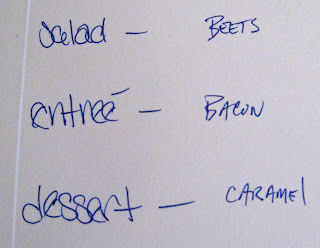 salad — BEETS
entreé — BACON
dessert — CARAMEL